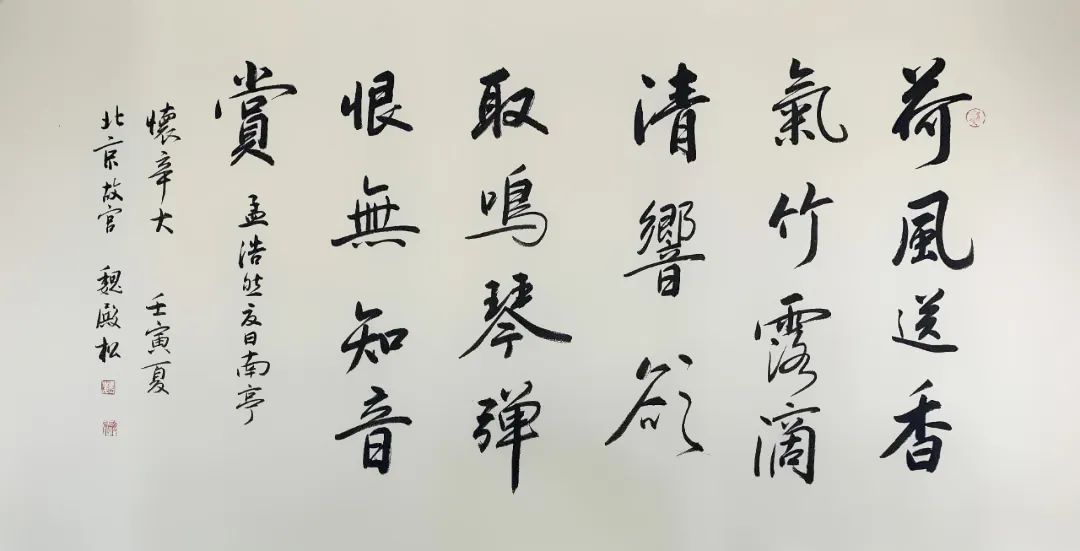 荷風送香
氣竹露滴
清響欲
取鳴琴彈
恨無知音
賞
孟浩然夏日南亭
懷辛大 壬寅夏
北京故宫 魏殿松